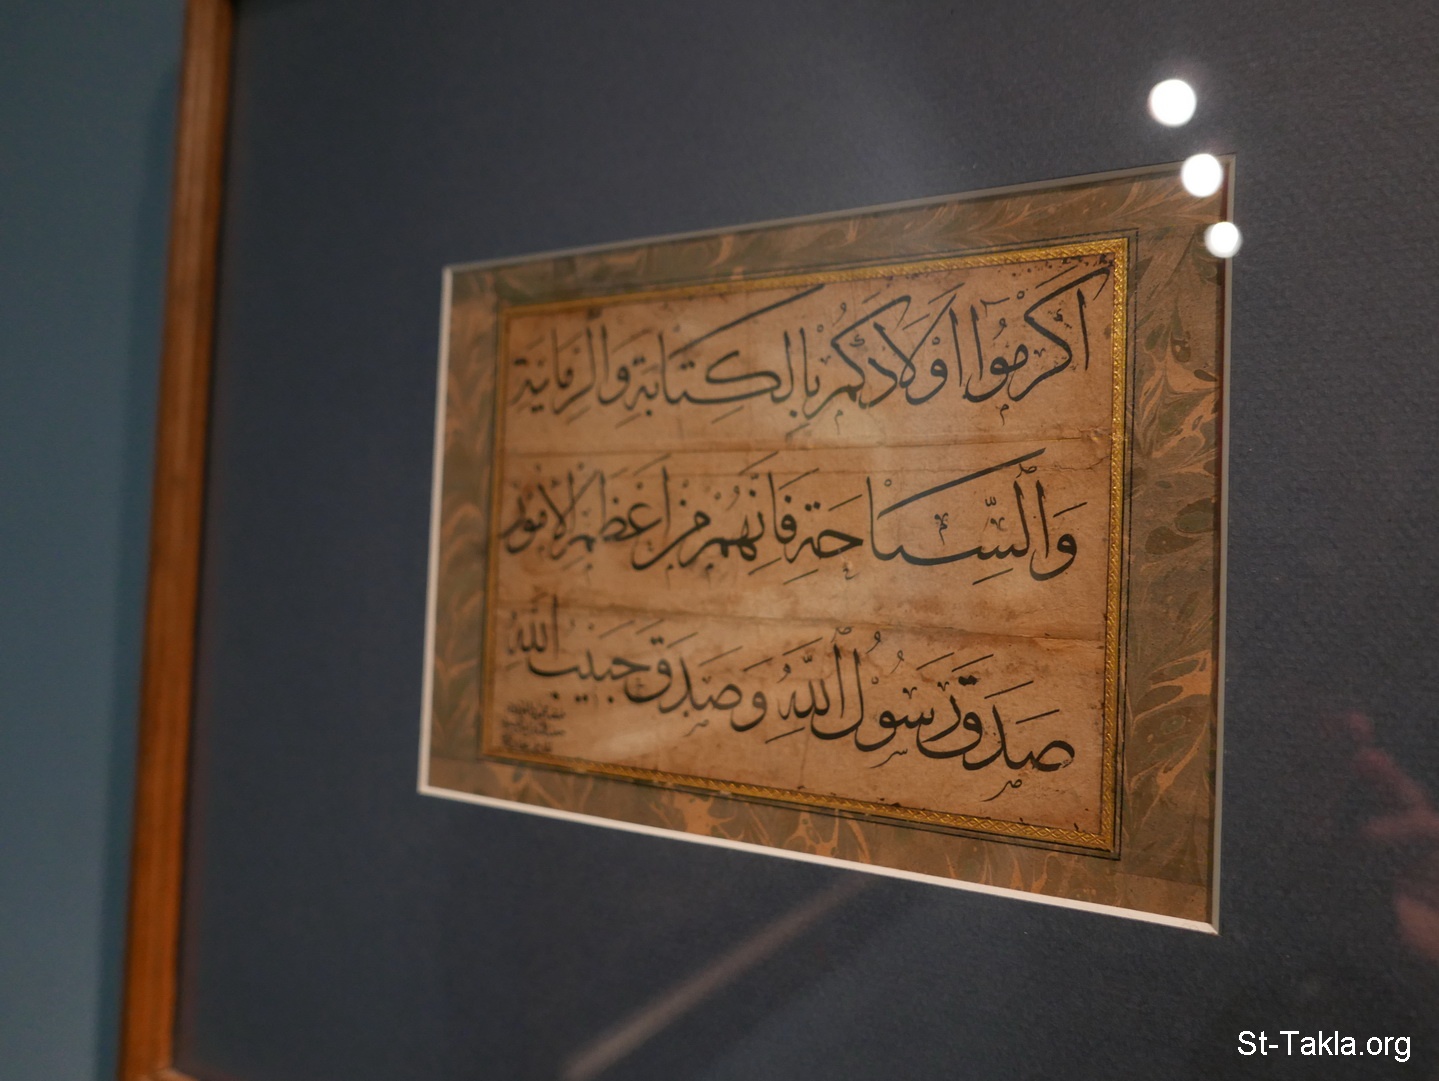 اَكْرِمُوا اَوْلَادَكُمْ بِالْكِتَابَةِ وَالرِّمَايَةِ
وَالسِّبَاحَةِ فَاِنَّهُمْ مِنْ اَعْظَمِ الْاُمُورِ
صَدَقَ رَسُولُ اللّٰهِ وَصَدَقَ حَبِيبُ اللّٰهِ
St-Takla.org